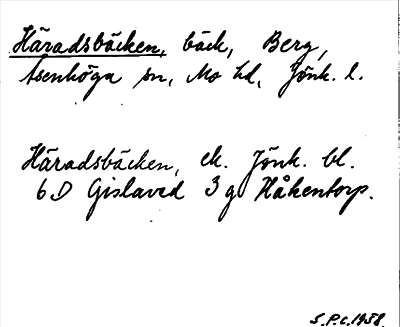 Häradsbäcken, bäck, Berg,
Åsenhöga sn, Mo hd, Jönk. l.
Häradsbäcken, ek. Jönk. bl.
6 D Gislaved 3 g Håkentorp.
S.P.C. 1958.